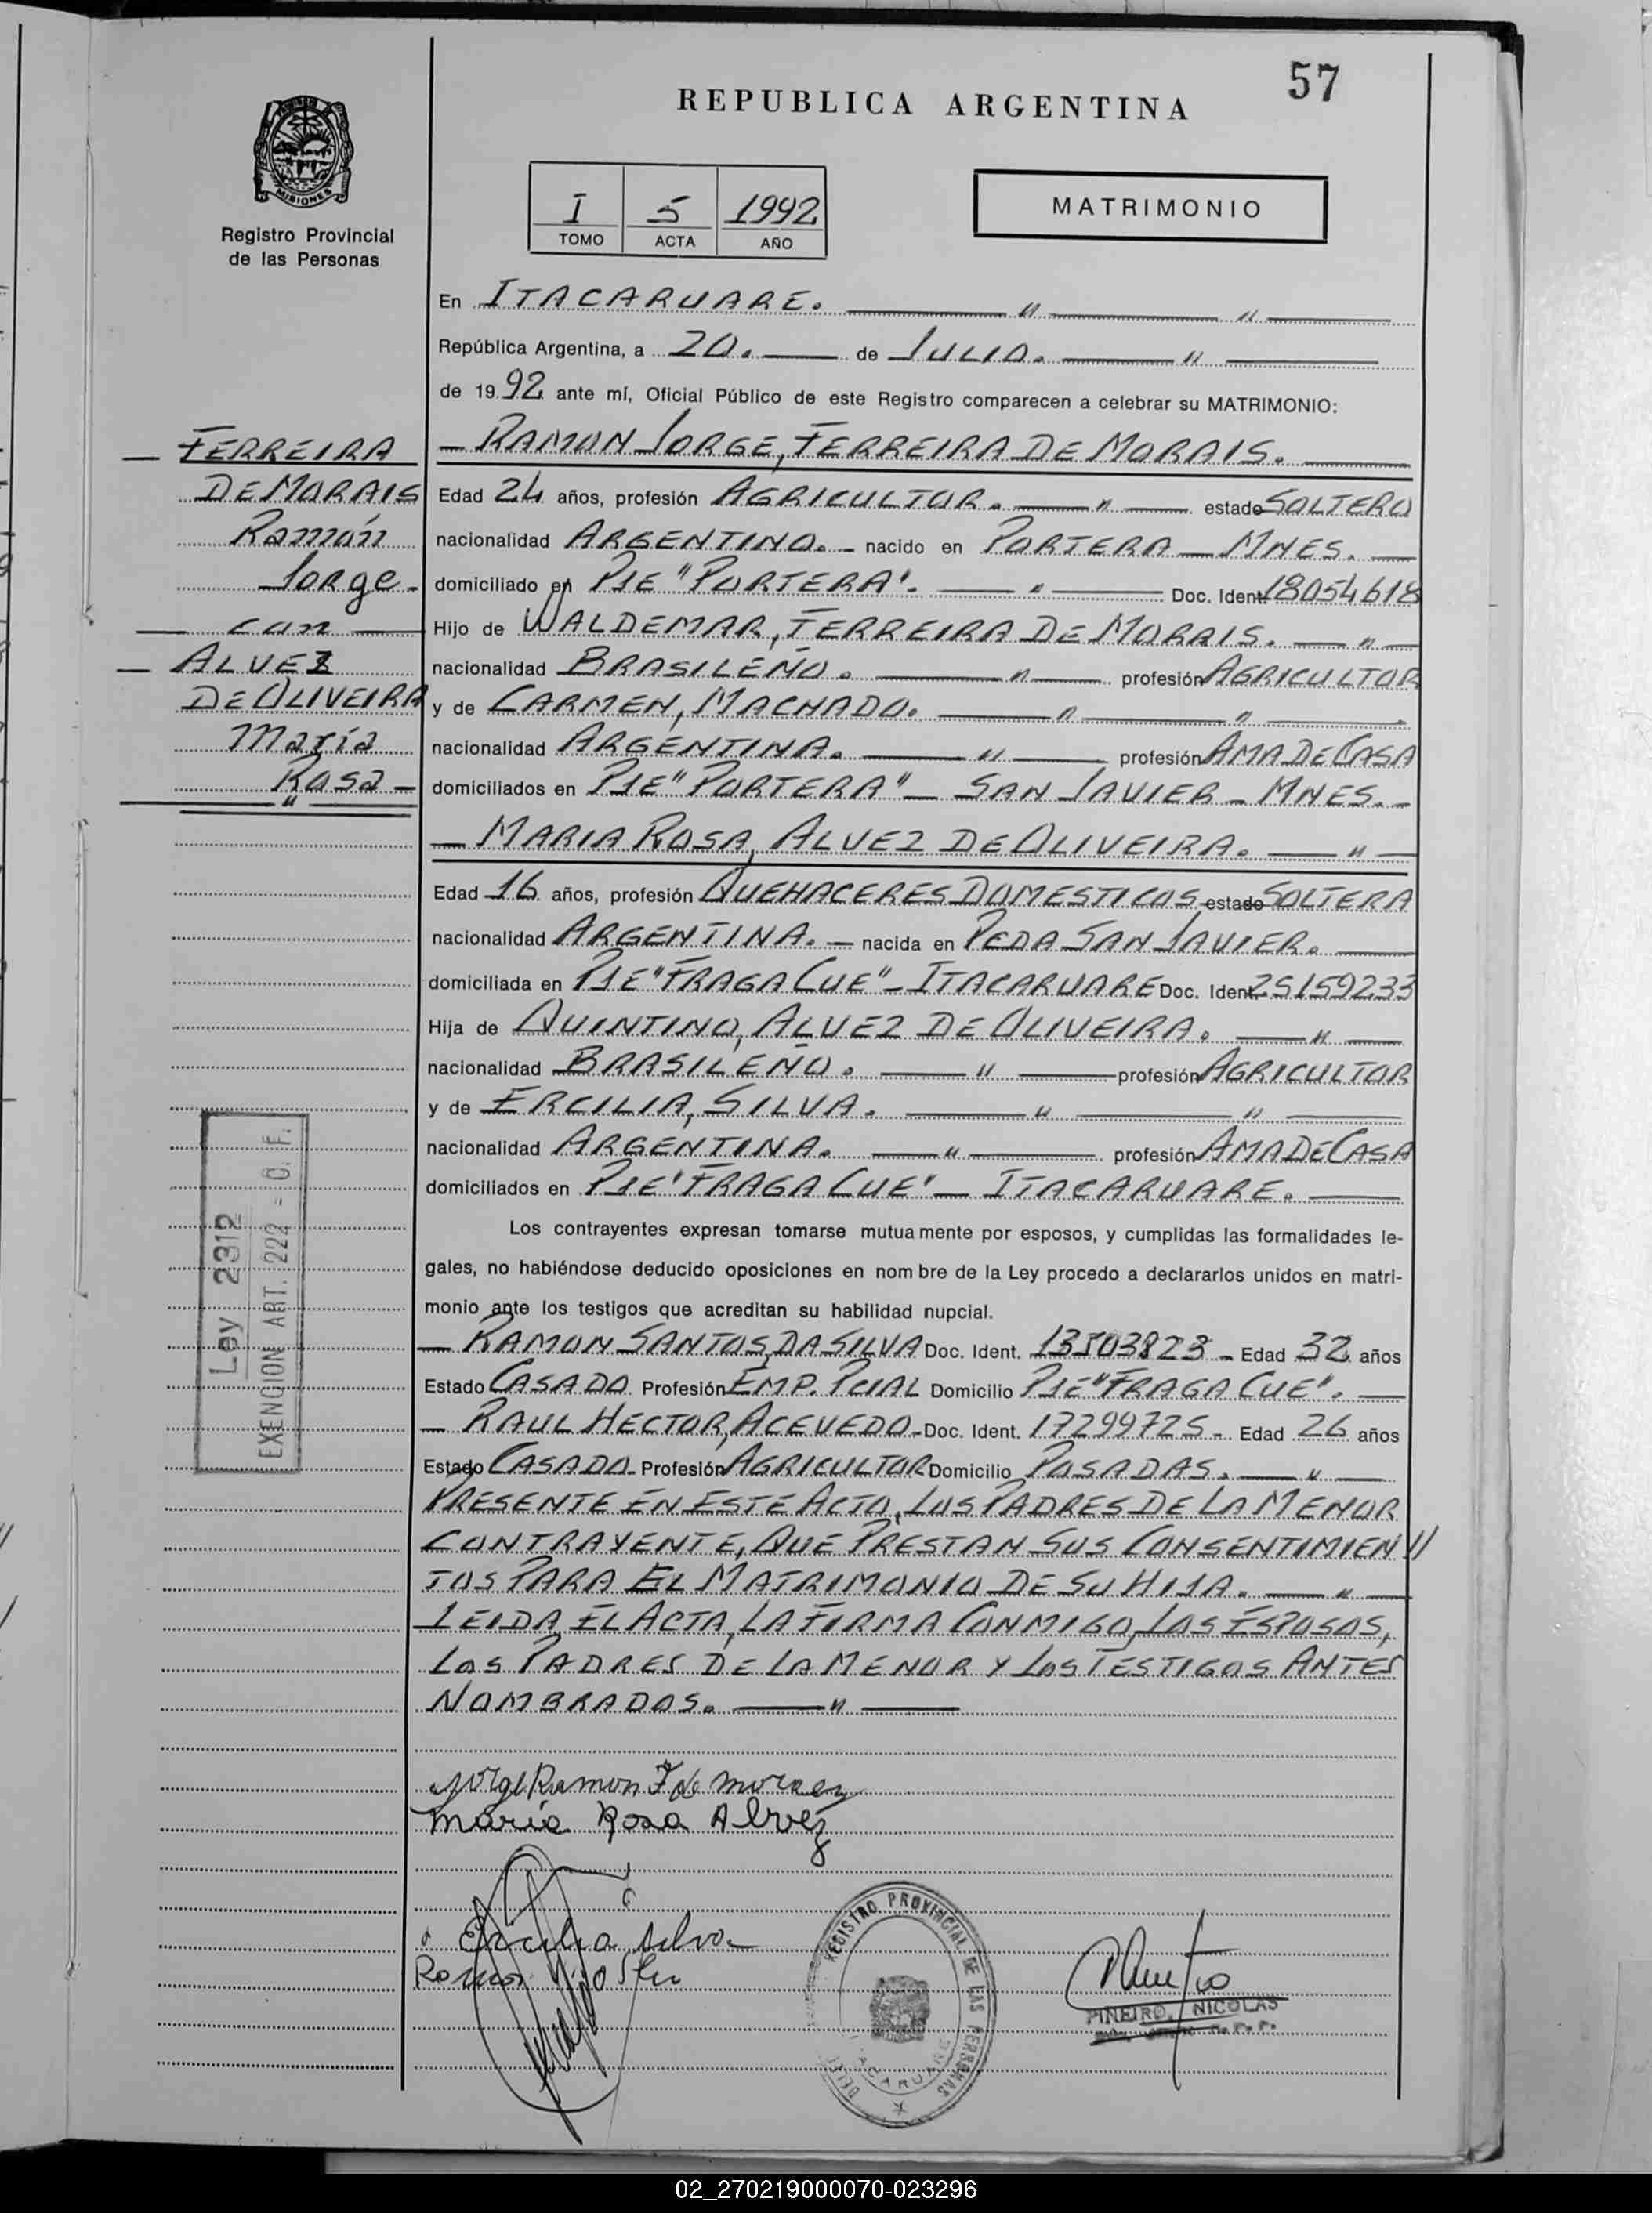 57
REPUBLICA ARGENTINA
MISIONES
Registro Provincial
de las Personas
I 5 1992
TOMO ACTA AÑO
MATRIMONIO
En ITACARUARE.
República Argentina, a 20. de JULIO.
de 1992 ante mí, Oficial Público de este Registro comparecen a celebrar su MATRIMONIO:
FERREIRA
DE MORAIS
Ramón
Jorge
con
ALVEZ
DE OLIVEIRA
María
Rosa
RAMON JORGE, FERREIRA DE MORAIS.
Edad 24 años, profesión AGRICULTOR. estado SOLTERO
nacionalidad ARGENTINO. nacido en PORTERA - MNES.
domiciliado en PJE "PORTERA". Doc. Ident. 18054618
Hijo de WALDEMAR, FERREIRA DE MORAIS.
nacionalidad BRASILEÑO. profesión AGRICULTOR
y de CARMEN, MACHADO.
nacionalidad ARGENTINA. profesión AMA DE CASA
domiciliados en PJE "PORTERA" - SAN JAVIER - MNES.
MARIA ROSA, ALVEZ DE OLIVEIRA.
Edad 16 años, profesión QUEHACERES DOMESTICOS estado SOLTERA
nacionalidad ARGENTINA. nacida en PCDA SAN JAVIER.
domiciliada en PJE "FRAGA CUE" - ITACARUARE Doc. Ident. 25159233
Hija de QUINTINO, ALVEZ DE OLIVEIRA.
nacionalidad BRASILEÑO. profesión AGRICULTOR
y de ERCILIA, SILVA.
nacionalidad ARGENTINA. profesión AMA DE CASA
domiciliados en PJE "FRAGA CUE" - ITACARUARE.
Los contrayentes expresan tomarse mutuamente por esposos, y cumplidas las formalidades le-
gales, no habiéndose deducido oposiciones en nombre de la Ley procedo a declararlos unidos en matri-
monio ante los testigos que acreditan su habilidad nupcial.
RAMON SANTOS, DA SILVA Doc. Ident. 13503823 - Edad 32 años
Estado CASADO Profesión EMP. PCIAL Domicilio PJE "FRAGA CUE".
RAUL HECTOR, ACEVEDO - Doc. Ident. 17299725 - Edad 26 años
Estado CASADO Profesión AGRICULTOR Domicilio POSADAS.
PRESENTE EN ESTE ACTO, LOS PADRES DE LA MENOR
CONTRAYENTE, QUE PRESTAN SUS CONSENTIMIEN //
TOS PARA EL MATRIMONIO DE SU HIJA.
LEIDA EL ACTA, LA FIRMA CONMIGO, LOS ESPOSOS,
LOS PADRES DE LA MENOR Y LOS TESTIGOS ANTES
NOMBRADOS.
Ley 2312
EXENCION ART. 222 - C. F.
Jorge Ramon F de moraez
maria Rosa Alvez
Ercilia silva
REGISTRO PROVINCIAL DE LAS PERSONAS
PIÑEIRO, NICOLAS
02_270219000070-023296